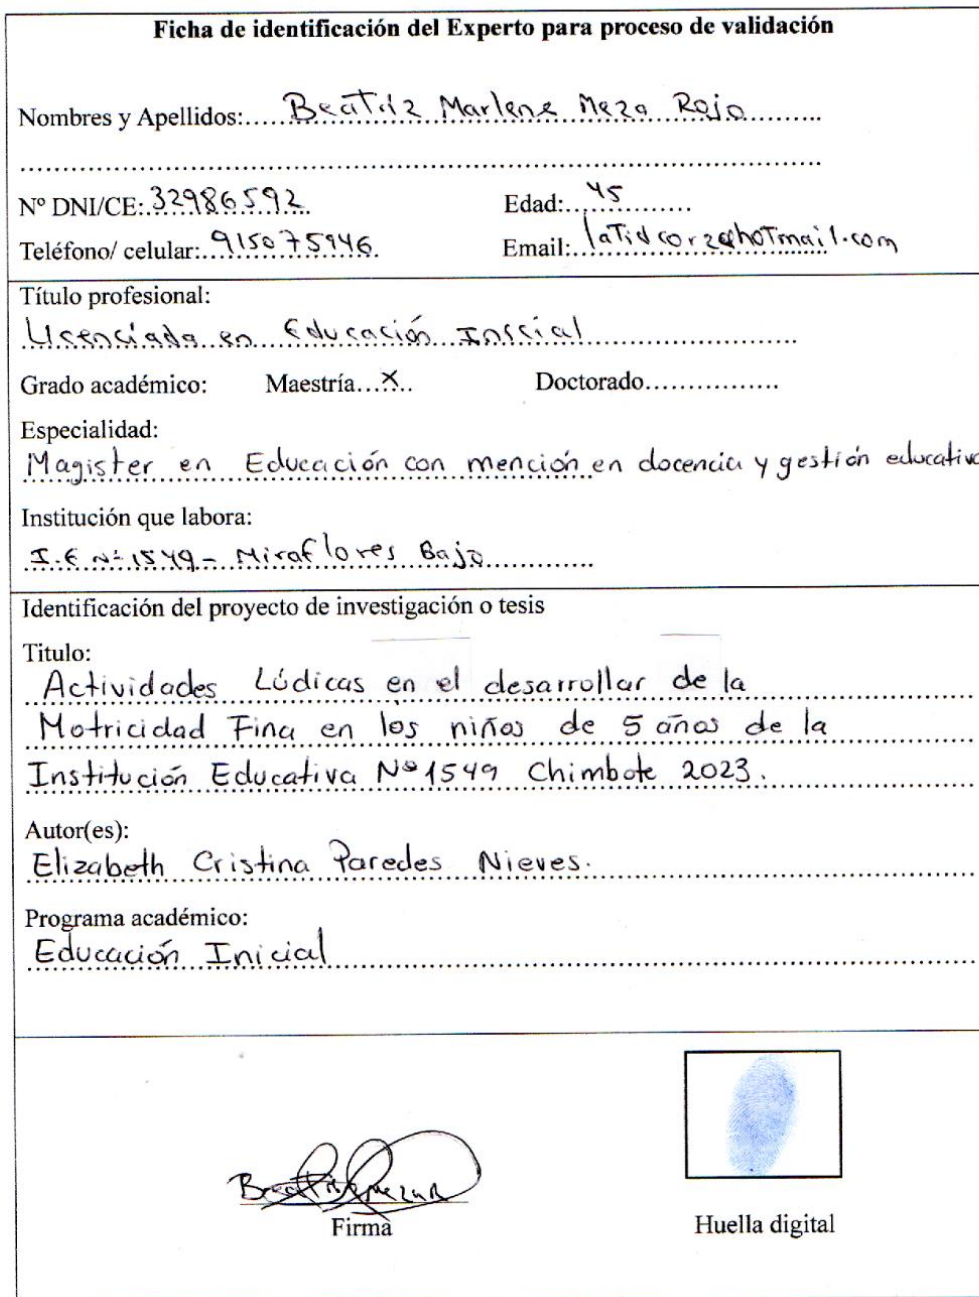 Ficha de identificación del Experto para proceso de validación
Nombres y Apellidos: Beatriz Marlene Meza Rojo
Nº DNI/CE: 32986592 Edad: 45
Teléfono/ celular: 915075946 Email: latidcorz@hotmail.com
Título profesional:
Licenciada en Educación Inicial
Grado académico: Maestría...X.. Doctorado
Especialidad:
Magister en Educación con mención en docencia y gestión educativa
Institución que labora:
I.E Nº 1549 - Miraflores Bajo
Identificación del proyecto de investigación o tesis
Titulo:
Actividades Lúdicas en el desarrollar de la
Motricidad Fina en los niños de 5 años de la
Institución Educativa Nº 1549 Chimbote 2023.
Autor(es):
Elizabeth Cristina Paredes Nieves.
Programa académico:
Educación Inicial
Firma
Huella digital